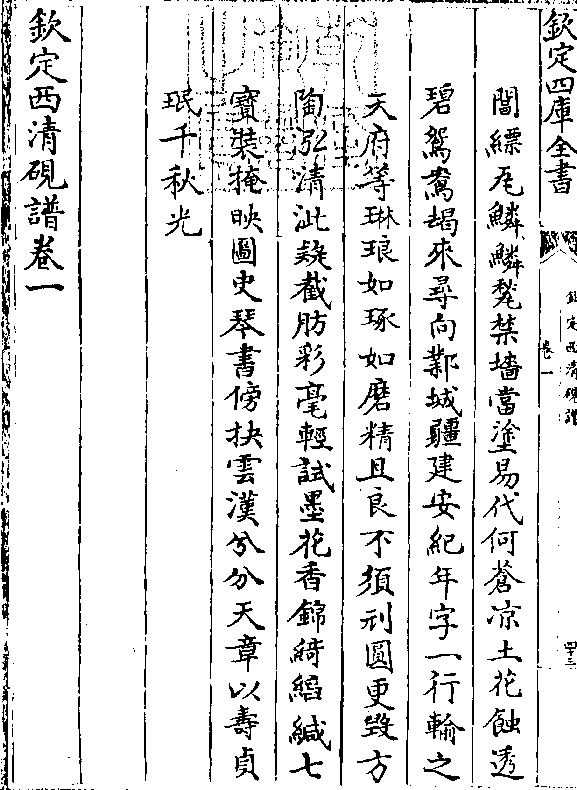 欽定四庫全書
欽定西清硯譜
卷一
四十三
閶縹瓦鱗鱗甃禁墻當塗易代何蒼凉土花蝕透
碧鴛鴦朅來尋向鄴城疆建安紀年字一行輪之
天府等琳琅如琢如磨精且良不須刓圓更毀方
陶弘清泚疑截肪彩毫輕試墨花香錦綺縚緘七
寳裝掩映圖史琴書傍抉雲漢兮分天章以壽貞
珉千秋光
欽定西清硯譜卷一